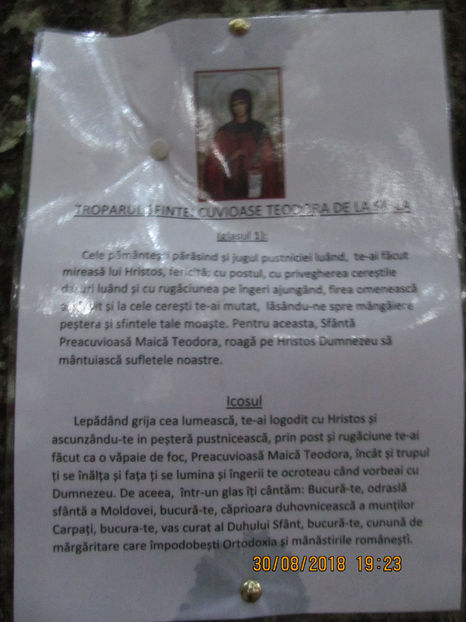 TROPARUL SFINTEI CUVIOASE TEODORA DE LA SIHLA
(glasul 1):
Cele pământești părăsind și jugul pustniciei luând, te-ai făcut
mireasă lui Hristos, fericită; cu postul, cu privegherea cereștile
daruri luând și cu rugăciunea pe îngeri ajungând, firea omenească
și la cele cerești te-ai mutat, lăsându-ne spre mângâiere
peștera și sfintele tale moaște. Pentru aceasta, Sfântă
Preacuvioasă Maică Teodora, roagă pe Hristos Dumnezeu să
mântuiască sufletele noastre.
Icosul
Lepădând grija cea lumească, te-ai logodit cu Hristos și
ascunzându-te in peșteră pustnicească, prin post și rugăciune te-ai
făcut ca o văpaie de foc, Preacuvioasă Maică Teodora, încât și trupul
ți se înălța și fața ți se lumina și îngerii te ocroteau când vorbeai cu
Dumnezeu. De aceea, într-un glas îți cântăm: Bucură-te, odraslă
sfântă a Moldovei, bucură-te, căprioara duhovnicească a munților
Carpați, bucura-te, vas curat al Duhului Sfânt, bucură-te, cunună de
mărgăritare care împodobești Ortodoxia și mânăstirile românești.
30/08/2018 19:23